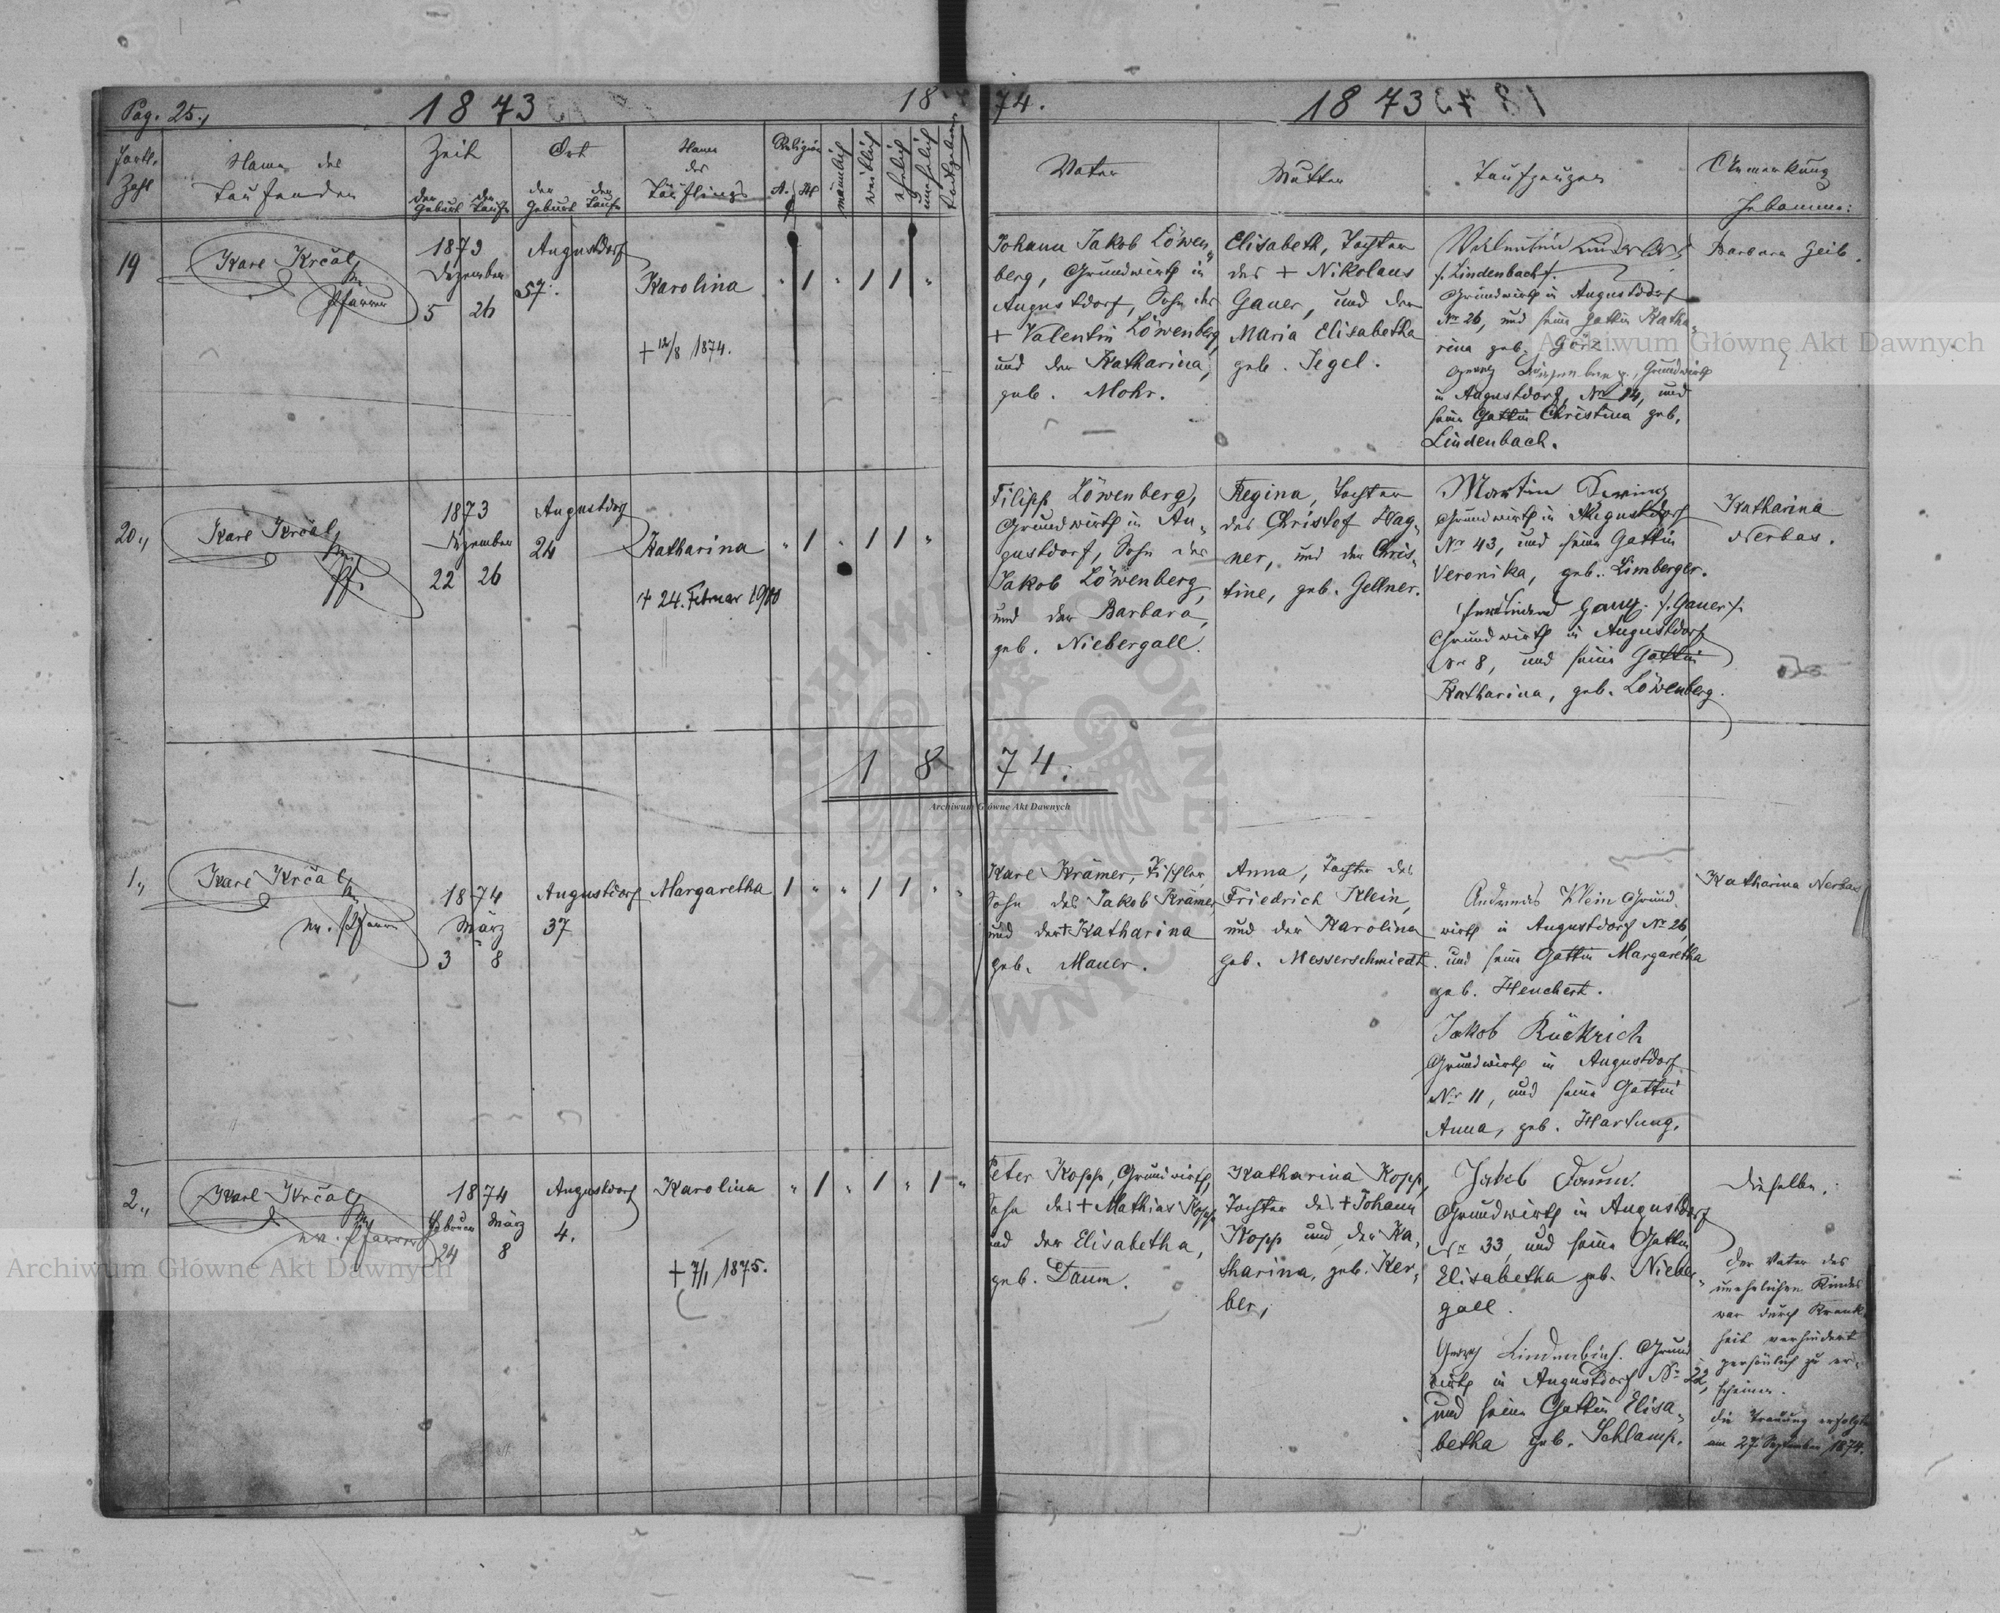 Pag. 25.,
1873
18 74.
1873
Fortl. Zahl
Name des Taufenden
Zeit
der Geburt
der Taufe
Ort
der Geburt
der Taufe
Name des Täuflings
Religion
A. H
männlich
weiblich
ehelich
unehelich
Vater
Mutter
Taufzeugen
Anmerkung
Hebamme:
19
Karl Krčal
Pfarrer
1873
Dezember
5 26
Augustdorf
57.
Karolina
+ 12/8 1874.
" 1 " 1 1 "
Johann Jakob Löwen-
berg, Grundwirth in
Augustdorf, Sohn des
+ Valentin Löwenberg,
und der Katharina,
geb. Mohr.
Elisabeth, Tochter
des + Nikolaus
Gauer, und der
Maria Elisabetha
geb. Jegel.
Valentin
/. Lindenbach /.
Grundwirth in Augustdorf
Nr 26, und seine Gattin Katha-
rina geb.
Georg Grundwirth
in Augustdorf, Nr 14, und
seine Gattin Christina geb.
Lindenbach.
Barbara Zeib.
20.,
Karl Krčal,
Pf.
1873
Dezember
22 26
Augustdorf
24
Katharina
+ 24. Februar 1900
" 1 " 1 1 "
Filipp Löwenberg,
Grundwirth in Au-
gustdorf, Sohn des
Jakob Löwenberg,
und der Barbara,
geb. Niebergall.
Regina, Tochter
des Christof Wag-
ner, und der Chris-
tine, geb. Gellner.
Martin
Grundwirth in Augustdorf
Nr 43, und seine Gattin
Veronika, geb. Limberger.
Ferdinand /. Gauer /.
Grundwirth in Augustdorf
Nr 8, und seine Gattin
Katharina, geb. Löwenberg.
Katharina
Nerbas.
18 74.
1.,
Karl Krčal,
ev. Pfarrer
1874
März
3 8
Augustdorf
37
Margaretha
1 " " 1 1 " "
Karl Krämer, Tischler,
Sohn des Jakob Krämer
und der + Katharina
geb. Mauer.
Anna, Tochter des
Friedrich Klein,
und der Karolina
geb. Messerschmiedt.
Andreas Klein Grund-
wirth in Augustdorf Nr 26,
und seine Gattin Margaretha
geb. Henchert.
Jakob Rückrich
Grundwirth in Augustdorf
Nr 11, und seine Gattin
Anna, geb. Hartung.
Katharina Nerbas
2.,
Karl Krčal,
ev. Pfarrer
1874
Februar März
24 8
Augustdorf
4.
Karolina
+ 7/1 1875.
" 1 " 1 " 1 "
Peter Kopp, Grundwirth,
Sohn des + Mathias Kopp
und der Elisabetha,
geb. Daum.
Katharina Kopp,
Tochter des + Johann
Kopp und der Ka-
tharina, geb. Ker-
ber,
Jakob Daum.
Grundwirth in Augustdorf
Nr 33, und seine Gattin
Elisabetha geb. Nieber-
gall.
Georg Lindenbach. Grund-
wirth in Augustdorf Nr 22,
und seine Gattin Elisa-
betha geb. Schlamp.
Dieselbe.
Der Vater des
unehelichen Kindes
war durch Krank-
heit verhindert
persönlich zu er-
scheinen.
Die Trauung erfolgte
am 27. September 1874.
Archiwum Główne Akt Dawnych
Archiwum Główne Akt Dawnych
Archiwum Główne Akt Dawnych
ARCHIWUM GŁÓWNE AKT DAWNYCH